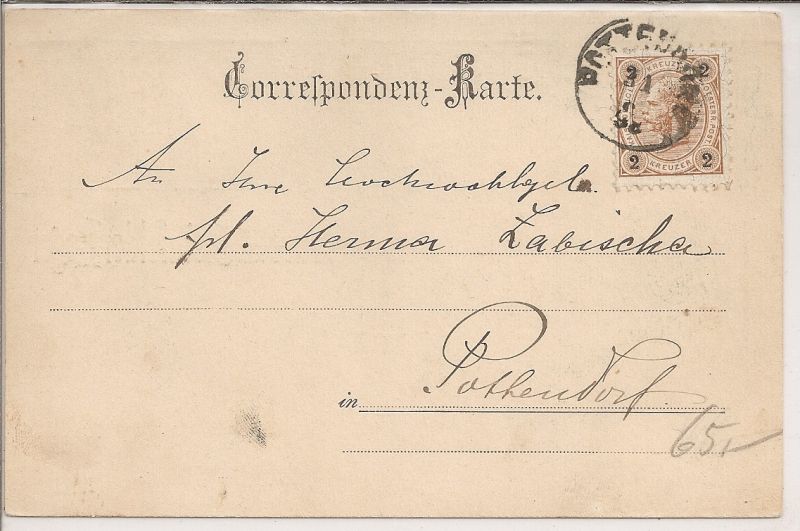 Correspondenz-Karte.
An Ihre Hochwohlgeb.
frl. Herma Zabischa
in Pottendorf
65,-
2
2
2
2
KREUZER
KREUZER